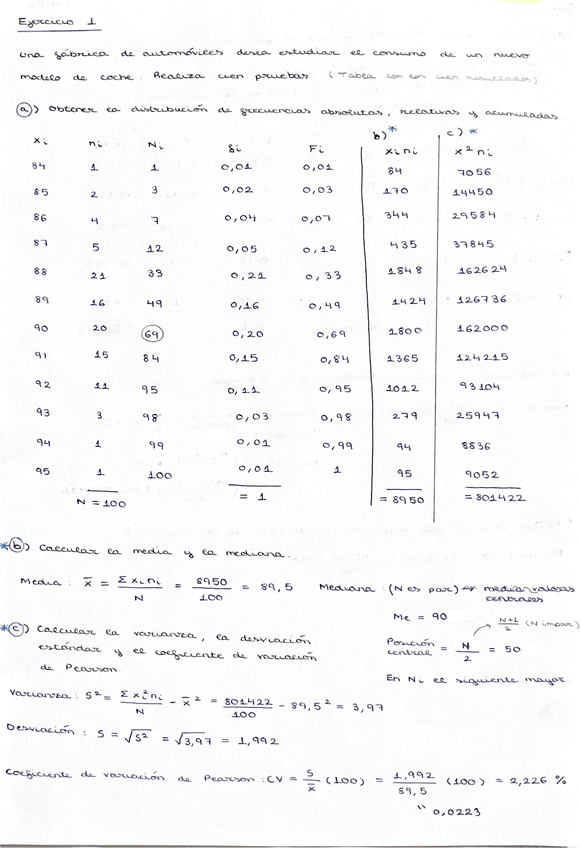 Ejercicio 1
Una fábrica de automóviles desea estudiar el consumo de un nuevo
modelo de coche. Realiza cien pruebas. (Tabla con los cien resultados)
a) Obtener la distribución de frecuencias absolutas, relativas y acumuladas.
b)* c) *
xi ni Ni fi Fi xini x²ni
84 1 1 0,01 0,01 84 7056
85 2 3 0,02 0,03 170 14450
86 4 7 0,04 0,07 344 29584
87 5 12 0,05 0,12 435 37845
88 21 33 0,21 0,33 1848 162624
89 16 49 0,16 0,49 1424 126736
90 20 69 0,20 0,69 1800 162000
91 15 84 0,15 0,84 1365 124215
92 11 95 0,11 0,95 1012 93104
93 3 98 0,03 0,98 279 25947
94 1 99 0,01 0,99 94 8836
95 1 100 0,01 1 95 9052
N = 100 = 1 = 8950 = 801422
*b) Calcular la media y la mediana.
Media : x̄ = Σxini / N = 8950 / 100 = 89,5 Mediana : (N es par) → media valores
centrales
Me = 90
*c) Calcular la varianza, la desviación
estándar y el coeficiente de variación
de Pearson.
N+1 / 2 (N impar)
Posición central = N / 2 = 50
En Ni el siguiente mayor
Varianza : S² = Σxi²ni / N - x̄² = 801422 / 100 - 89,5² = 3,97
Desviación : S = √S² = √3,97 = 1,992
Coeficiente de variación de Pearson : CV = S / x̄ (100) = 1,992 / 89,5 (100) = 2,226 %
" 0,0223